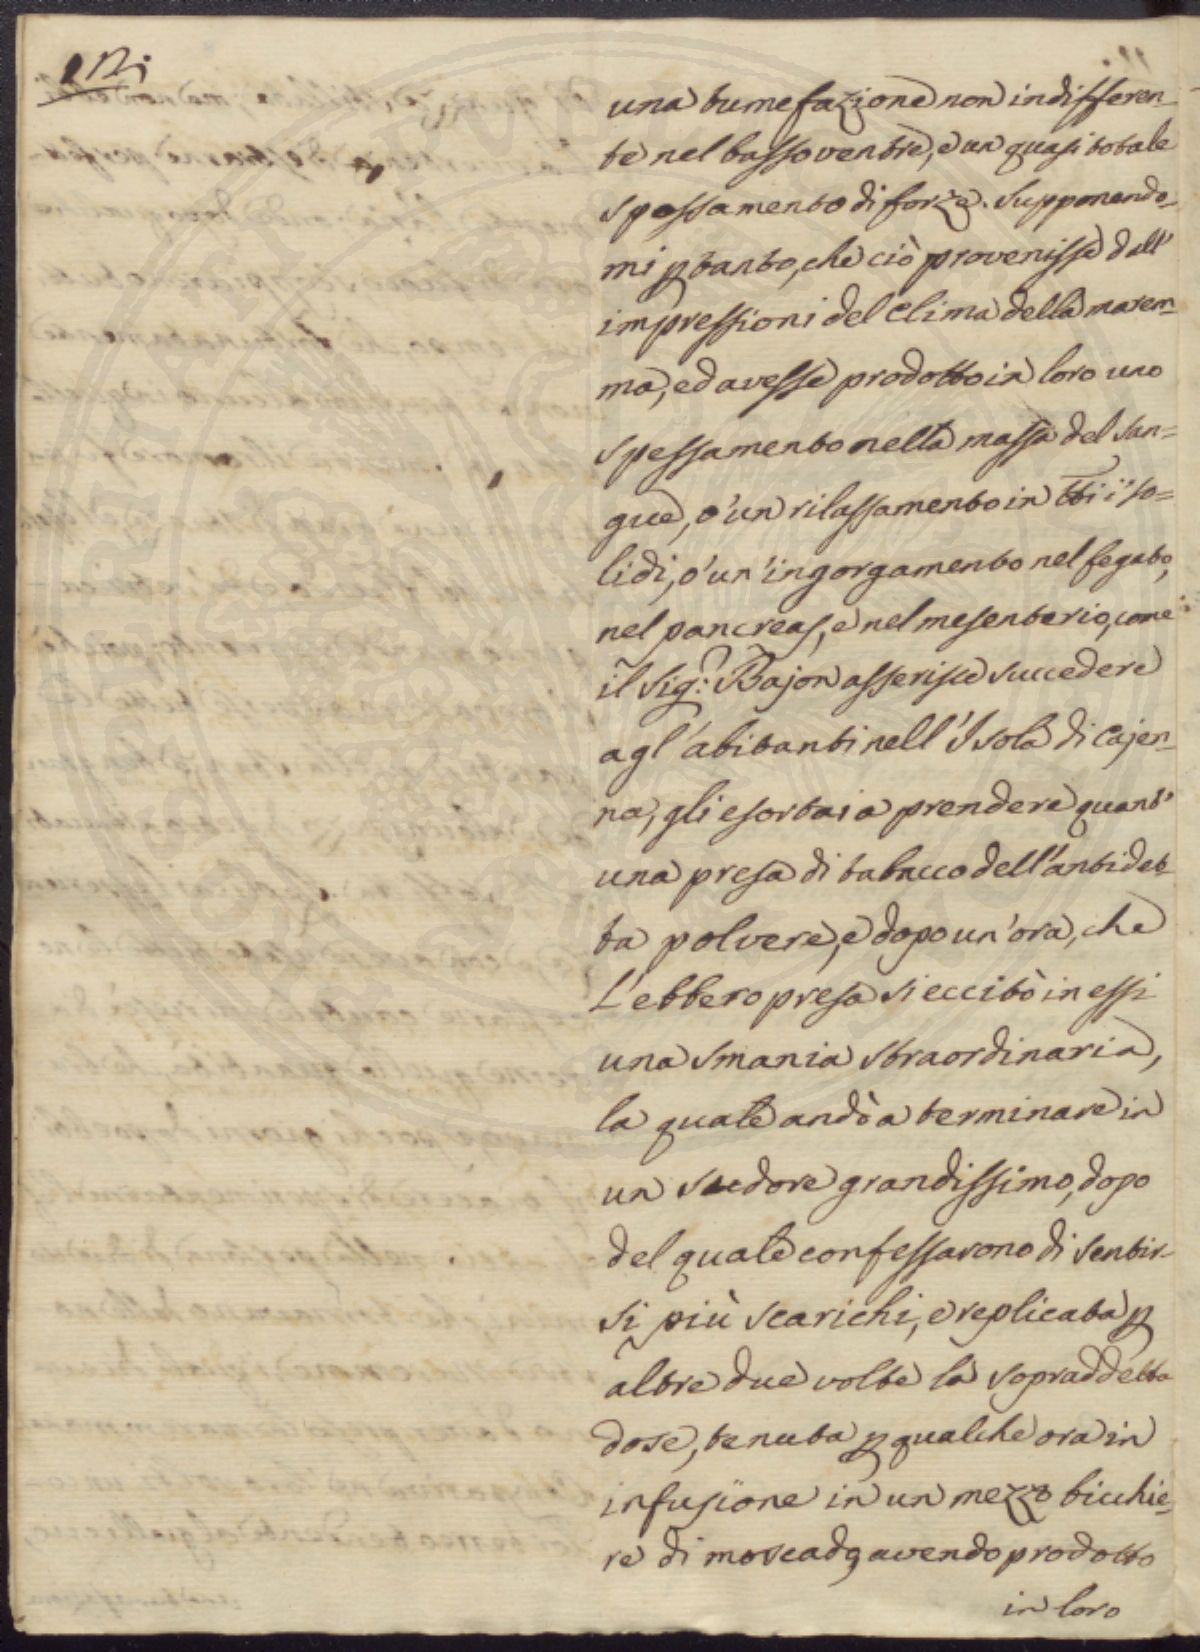 una tumefazione non indifferen-
te nel basso ventre, e un quasi totale
spossamento di forze. Supponendo-
mi ptanto, che ciò provenisse dall'
impressioni del Clima della marem-
ma, ed avesse prodotto in loro uno
spessamento nella massa del san=
gue, o' un rilassamento in tti i so=
lidi, o' un' ingorgamento nel fegato,
nel pancreas, e nel mesenterio, come
il Sig.r Bajon asserisce succedere
agl' abitanti nell' Isola di Cajen-
na, gli esortai a prendere quant'
una presa di tabacco dell' antidet-
ta polvere, e dopo un' ora, che
L' ebbero presa si eccitò in essi
una smania straordinaria,
la quale andò a terminare in
un sudore grandissimo, dopo
del quale confessarono di sentir-
si più scarichi, e replicata p
altre due volte la sopraddetta
dose, tenuta p qualche ora in
infusione in un mezzo bicchie-
re di moscado, avendo prodotto
in loro